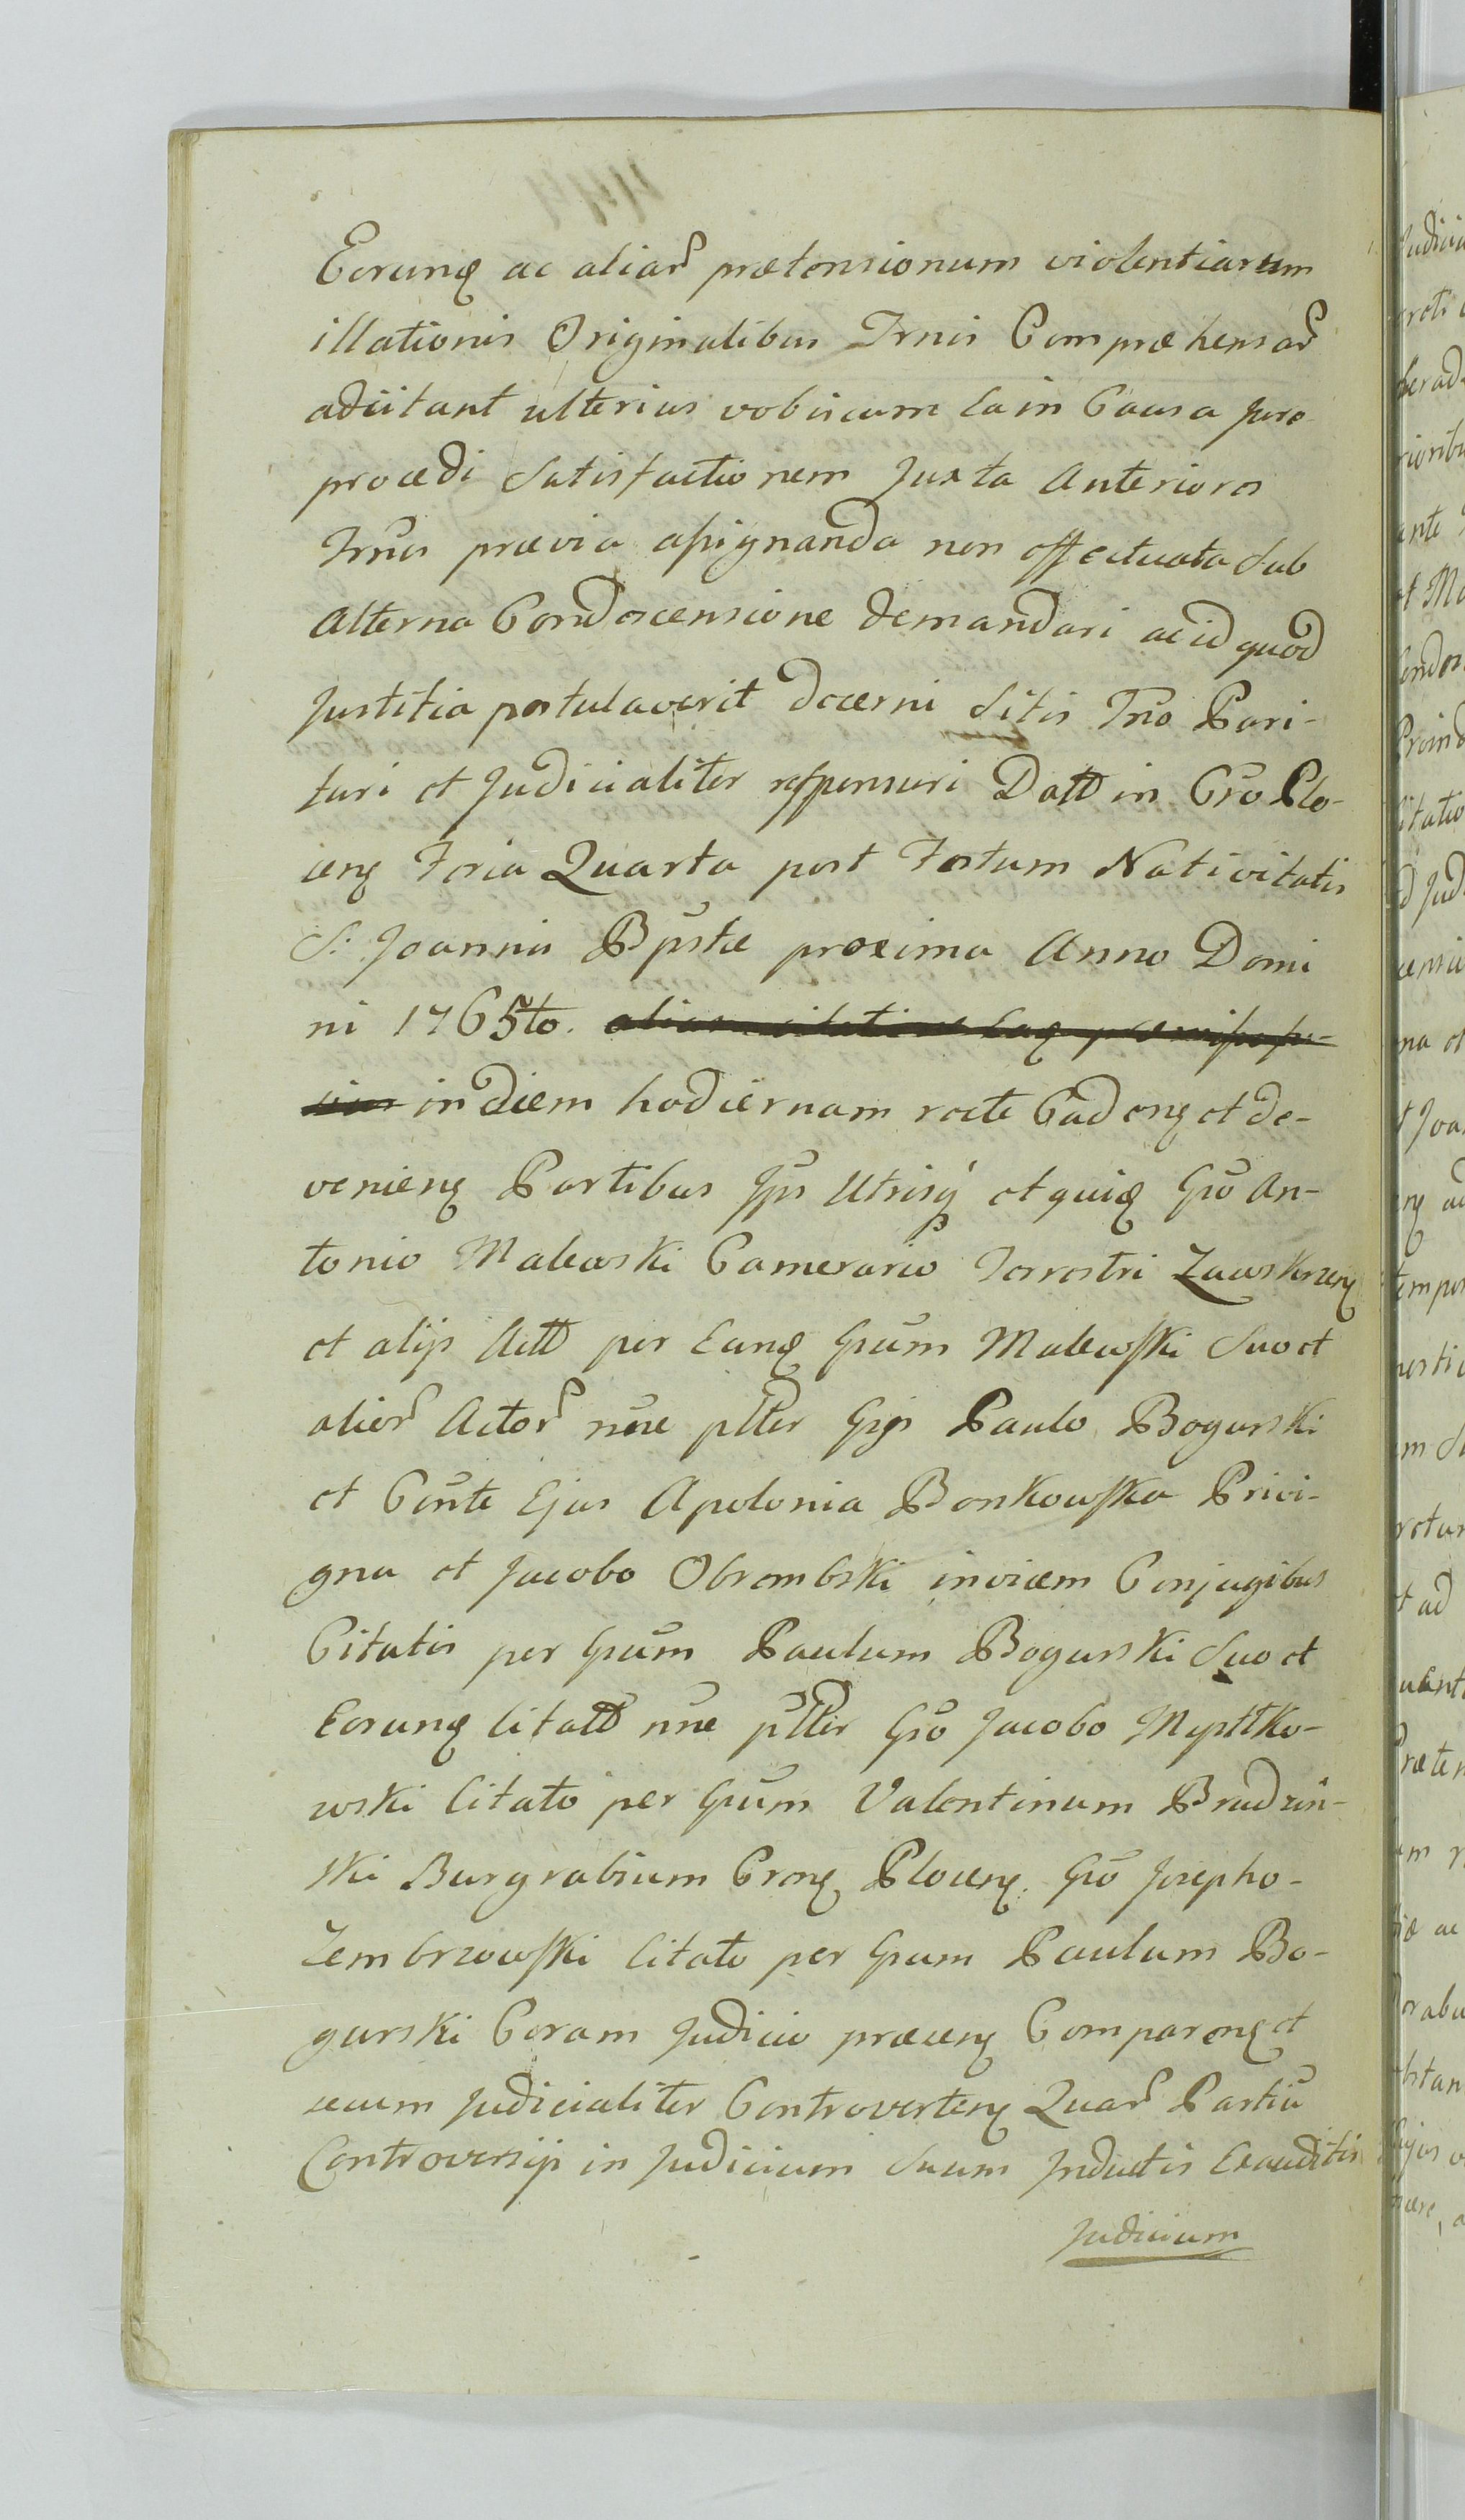 Eorunq ac aliar prætensionum violentiarum
illationis Originalibus Trnis Compræhensar
adcitant ulterius vobiscum Ea in Causa Jure
procedi Satisfactionem Juxta Anteriores
Trnos prævia assignanda non effectuata Sub
Alterna Condescensione demandari ac id quod
Justitia postulaverit decerni Sitis Trno Pari-
turi et Judicialiter responsuri Datt in Cro Plo-
cenq Feria Quarta post Festum Nativitatis
S. Joannis Bpstæ proxima Anno Domi
ni 1765to.
in diem hodiernam recte Cadenq et de-
venienq Partibus Ipis Utrisq et quiq Gso An-
tonio Malewski Camerario Terrestri Zawskrzenq
et alijs Actt per Eunq Gsum Malewski Suo et
alior Actor nne pltter Gsis Paulo Bogurski
et Conte Ejus Apolonia Bonkowska Privi-
gna et Jacobo Obrembski invicem Conjugibus
Citatis per Gsum Paulum Bogurski Suo et
Eorunq Citatt nne pltter Gso Jacobo Mysttko-
wski Citato per Gsum Valentinum Brudzin-
ski Burgrabium Crenq Plocenq. Gso Josepho-
Zembrzowski Citato per Gsum Paulum Bo-
gurski Coram Judicio præsenq Comparenq et
secum Judicialiter Controvertenq Quar Partiu
Controversijs in Judicium Suum Inductis Exauditis
Judicium